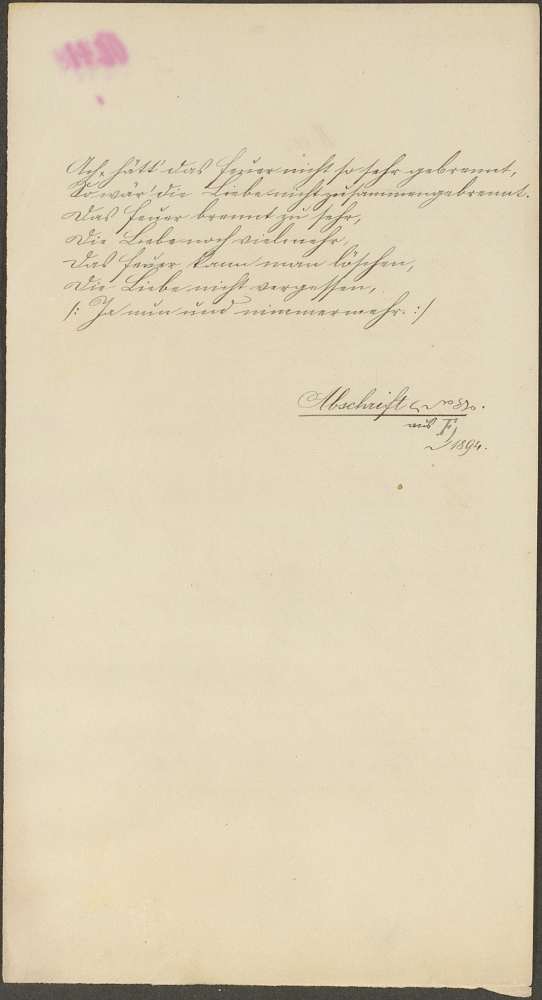 Ach, hätt' das Feuer nicht so sehr gebrennt,
So wär' die Liebe nicht zusammengebrennt.
Das Feuer brennt zu sehr,
Die Liebe noch vielmehr,
Das Feuer kann man löschen,
Die Liebe nicht vergessen,
/: Ja nun und nimmermehr. :/
Abschrift
aus F
1894.